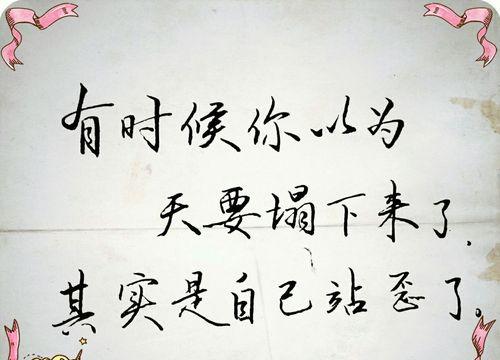 有时候你以为
天要塌下来了.
其实是自己站歪了.